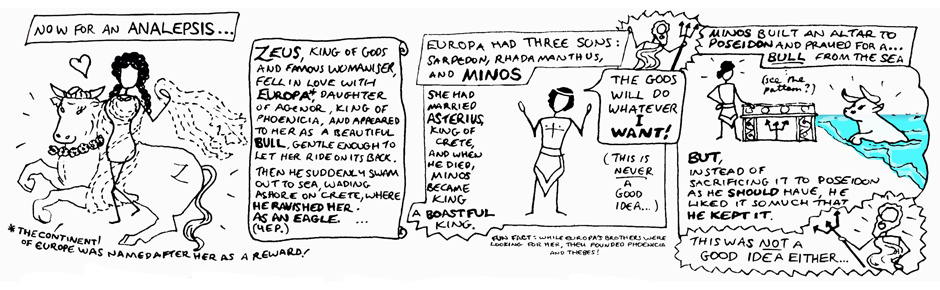 NOW FOR AN ANALEPSIS...
ZEUS, KING OF GODS
AND FAMOUS WOMANISER,
FELL IN LOVE WITH
EUROPA* DAUGHTER
OF AGENOR, KING OF
PHOENICIA, AND APPEARED
TO HER AS A BEAUTIFUL
BULL, GENTLE ENOUGH TO
LET HER RIDE ON ITS BACK.
THEN HE SUDDENLY SWAM
OUT TO SEA, WADING
ASHORE ON CRETE, WHERE
HE RAVISHED HER.
AS AN EAGLE. ...
(YEP.)
*THE CONTINENT!
OF EUROPE WAS NAMED AFTER HER AS A REWARD!
EUROPA HAD THREE SONS:
SARPEDON, RHADAMANTHUS,
AND MINOS
SHE HAD
MARRIED
ASTERIUS,
KING OF
CRETE,
AND WHEN
HE DIED,
MINOS
BECAME
KING
A BOASTFUL
KING.
THE GODS
WILL DO
WHATEVER
I
WANT!
(THIS IS
NEVER
A
GOOD
IDEA...)
FUN FACT: WHILE EUROPA'S BROTHERS WERE
LOOKING FOR HER, THEY FOUNDED PHOENICIA
AND THEBES!
MINOS BUILT AN ALTAR TO
POSEIDON AND PRAYED FOR A...
BULL FROM THE SEA
(see the
pattern?)
BUT,
INSTEAD OF
SACRIFICING IT TO POSEIDON
AS HE SHOULD HAVE, HE
LIKED IT SO MUCH THAT
HE KEPT IT.
THIS WAS NOT A
GOOD IDEA EITHER...